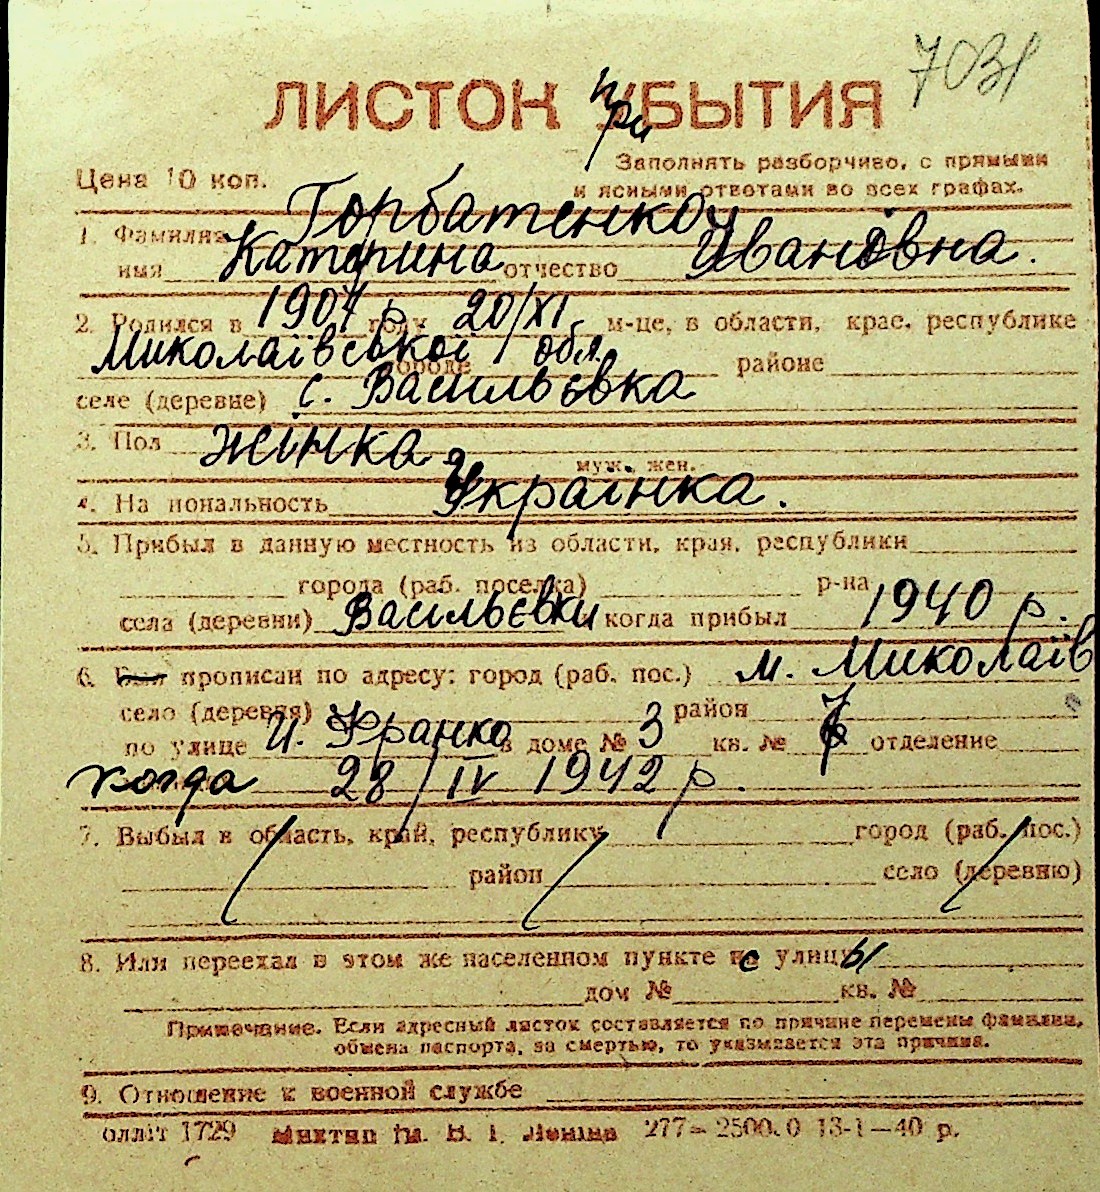 7031
ЛИСТОК при УБЫТИЯ
Цена 10 коп.
Заполнять разборчиво, с прямыми
и ясными ответами во всех графах.
Горбатенко
1. Фамилия
имя Катерина отчество Ивановна.
2. Родился в 1904 р. году 20/XI м-це, в области, крае, республике
Миколаївської обл. городе районе
селе (деревне) с. Васильєвка
3. Пол жінка
муж., жен.
4. Национальность Українка.
5. Прибыл в данную местность из области, края, республики
города (раб. поселка) р-на
села (деревни) Васильєвки когда прибыл 1940 р.
6. Был прописан по адресу: город (раб. пос.) м. Миколаїв
село (деревня) район
по улице И. Франко в доме № 3 кв. № 7 отделение
когда 28/IV 1942 р.
7. Выбыл в область, край, республику город (раб. пос.)
район село (деревню)
8. Или переехал в этом же населенном пункте с улицы
дом № кв. №
Примечание. Если адресный листок составляется по причине перемены фамилии,
обмена паспорта, за смертью, то указывается эта причина.
9. Отношение к военной службе
оллiт 1729 Миктип iм. В. I. Ленiна 277—2500.0 13-1—40 р.